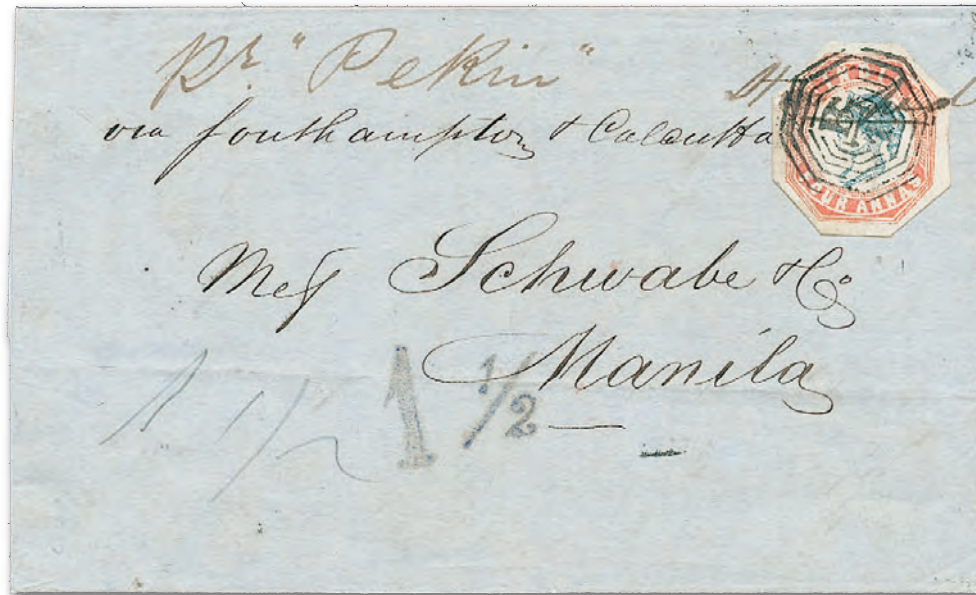 pr. "Pekin"
via Southampton & Calcutta
FOUR ANNAS
B
Mess Schwabe & Co
Manila
1 1/2 1 ½